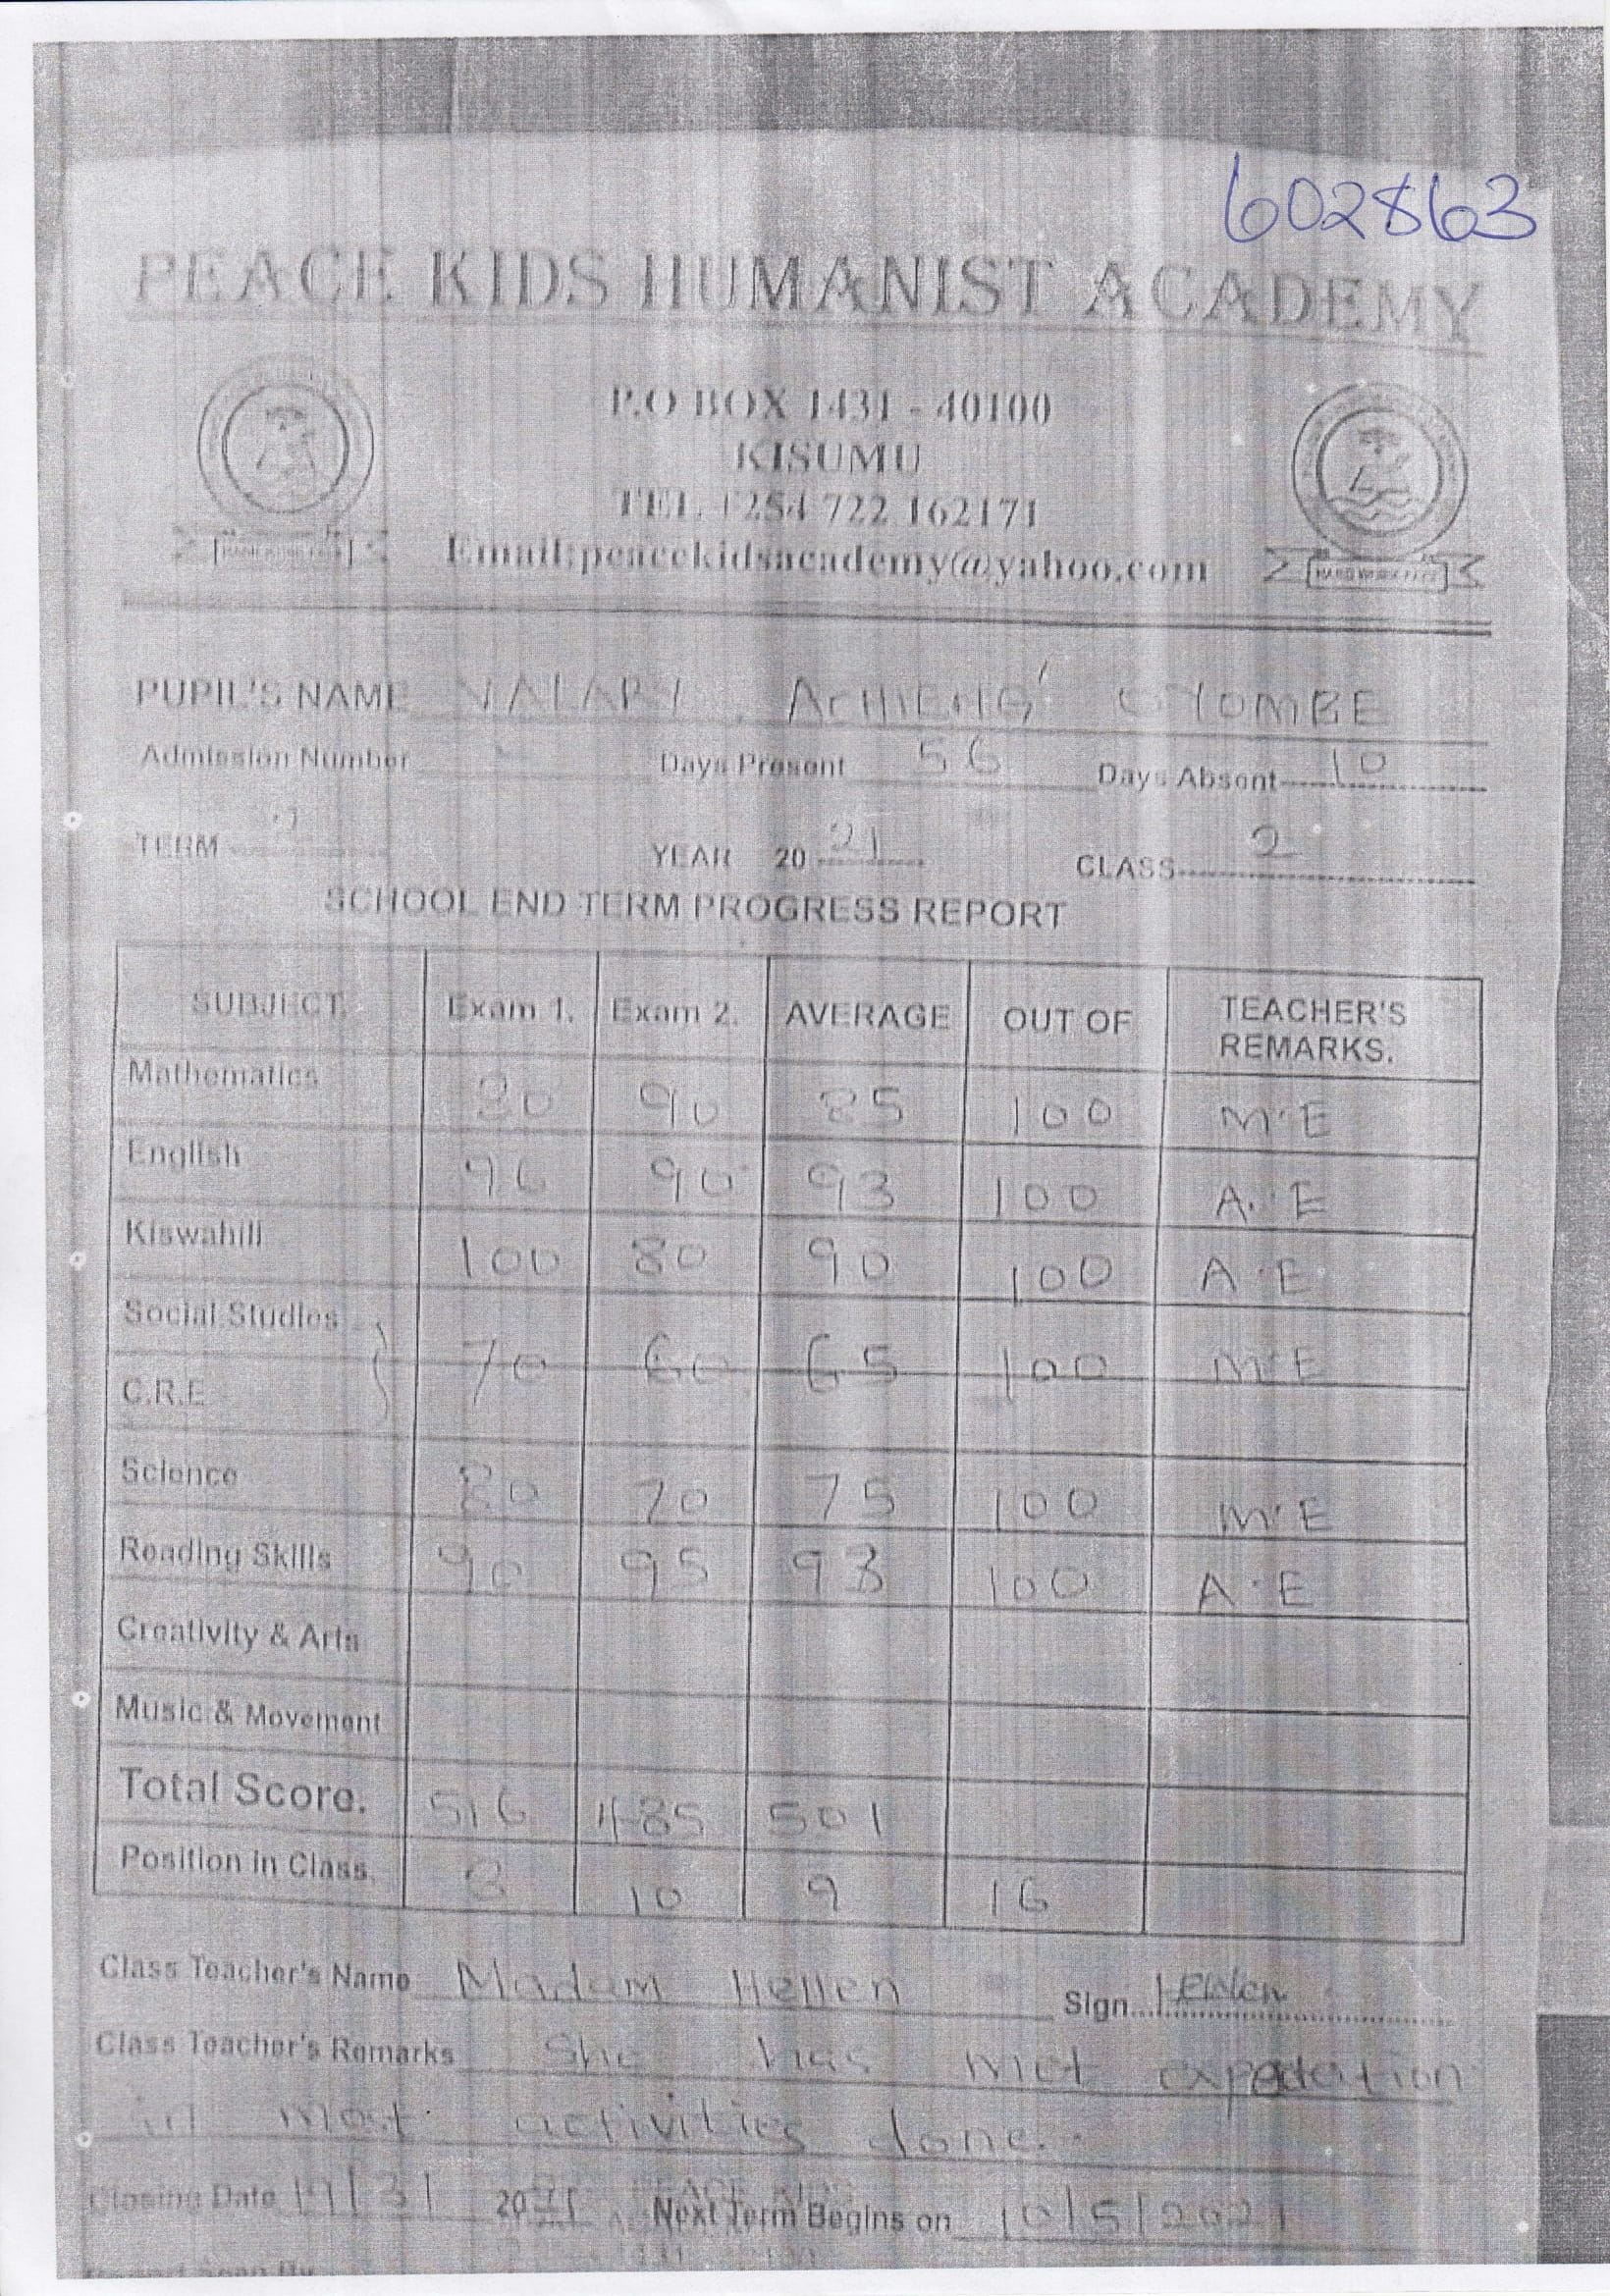 602863
PEACE KIDS HUMANIST ACADEMY
P.O BOX 1431 - 40100
KISUMU
TEL +254 722 162171
Email:peacekidsacademy@yahoo.com
PUPIL'S NAME VALARY ACHIENG'
Admission Number Days Present 56 Days Absent 10
TERM YEAR 20 21 CLASS 2
SCHOOL END TERM PROGRESS REPORT
SUBJECT. Exam 1. Exam 2. AVERAGE OUT OF TEACHER'S REMARKS.
Mathematics 80 90 85 100 M.E
English 96 90 93 100 A.E
Kiswahili 100 80 90 100 A.E
Social Studies
70 60 65 100 M.E
C.R.E
Science 80 70 75 100 M.E
Reading Skills 90 95 93 100 A.E
Creativity & Arts
Music & Movement
Total Score. 516 485 501
Position in Class. 10 9 16
Class Teacher's Name Madam Hellen Sign Hellen
Class Teacher's Remarks She has met expectation
in most activities done.
Closing Date 20 21 Next Term Begins on 10/5/2021